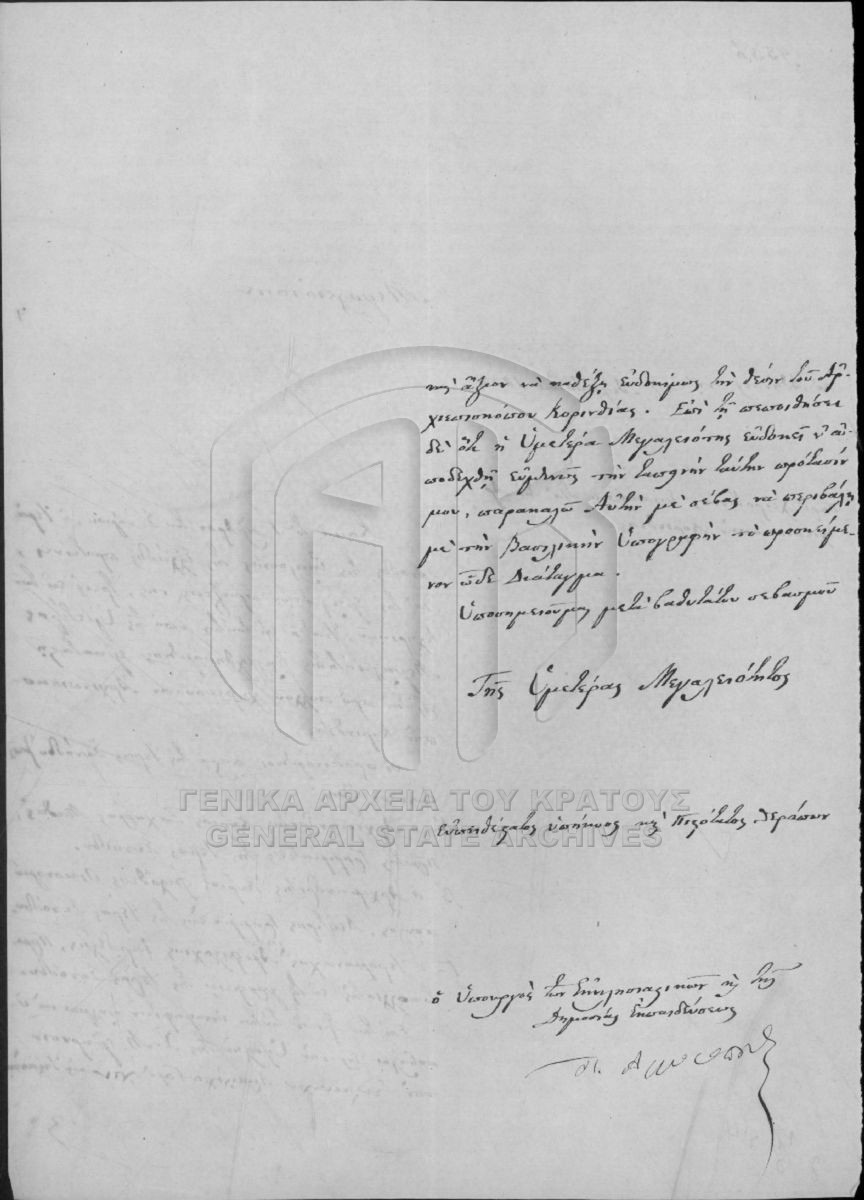 καὶ ἄξιον νὰ καθέξῃ εὐδοκίμως τὴν θέσιν τοῦ Ἀρ-
χιεπισκόπου Κορινθίας. Ἐπὶ τῇ πεποιθήσει
δὲ ὅτι ἡ Ὑμετέρα Μεγαλειότης εὐδοκεῖ ν' ἀ-
ποδεχθῇ εὐμενῶς τὴν ταπεινὴν ταύτην πρότασίν
μου, παρακαλῶ Αὐτὴν μὲ σέβας νὰ περιβάλῃ
μὲ τὴν Βασιλικὴν Ὑπογραφὴν τὸ προσκείμε-
νον ὧδε Διάταγμα.
Ὑποσημειοῦμαι μετὰ βαθυτάτου σεβασμοῦ
Τῆς Ὑμετέρας Μεγαλειότητος
ΓΕΝΙΚΑ ΑΡΧΕΙΑ ΤΟΥ ΚΡΑΤΟΥΣ
GENERAL STATE ARCHIVES
Εὐπειθέστατος ὑπήκοος καὶ Πιστότατος θεράπων
ὁ Ὑπουργὸς τῶν Ἐκκλησιαστικῶν καὶ τῆς
Δημοσίας Ἐκπαιδεύσεως